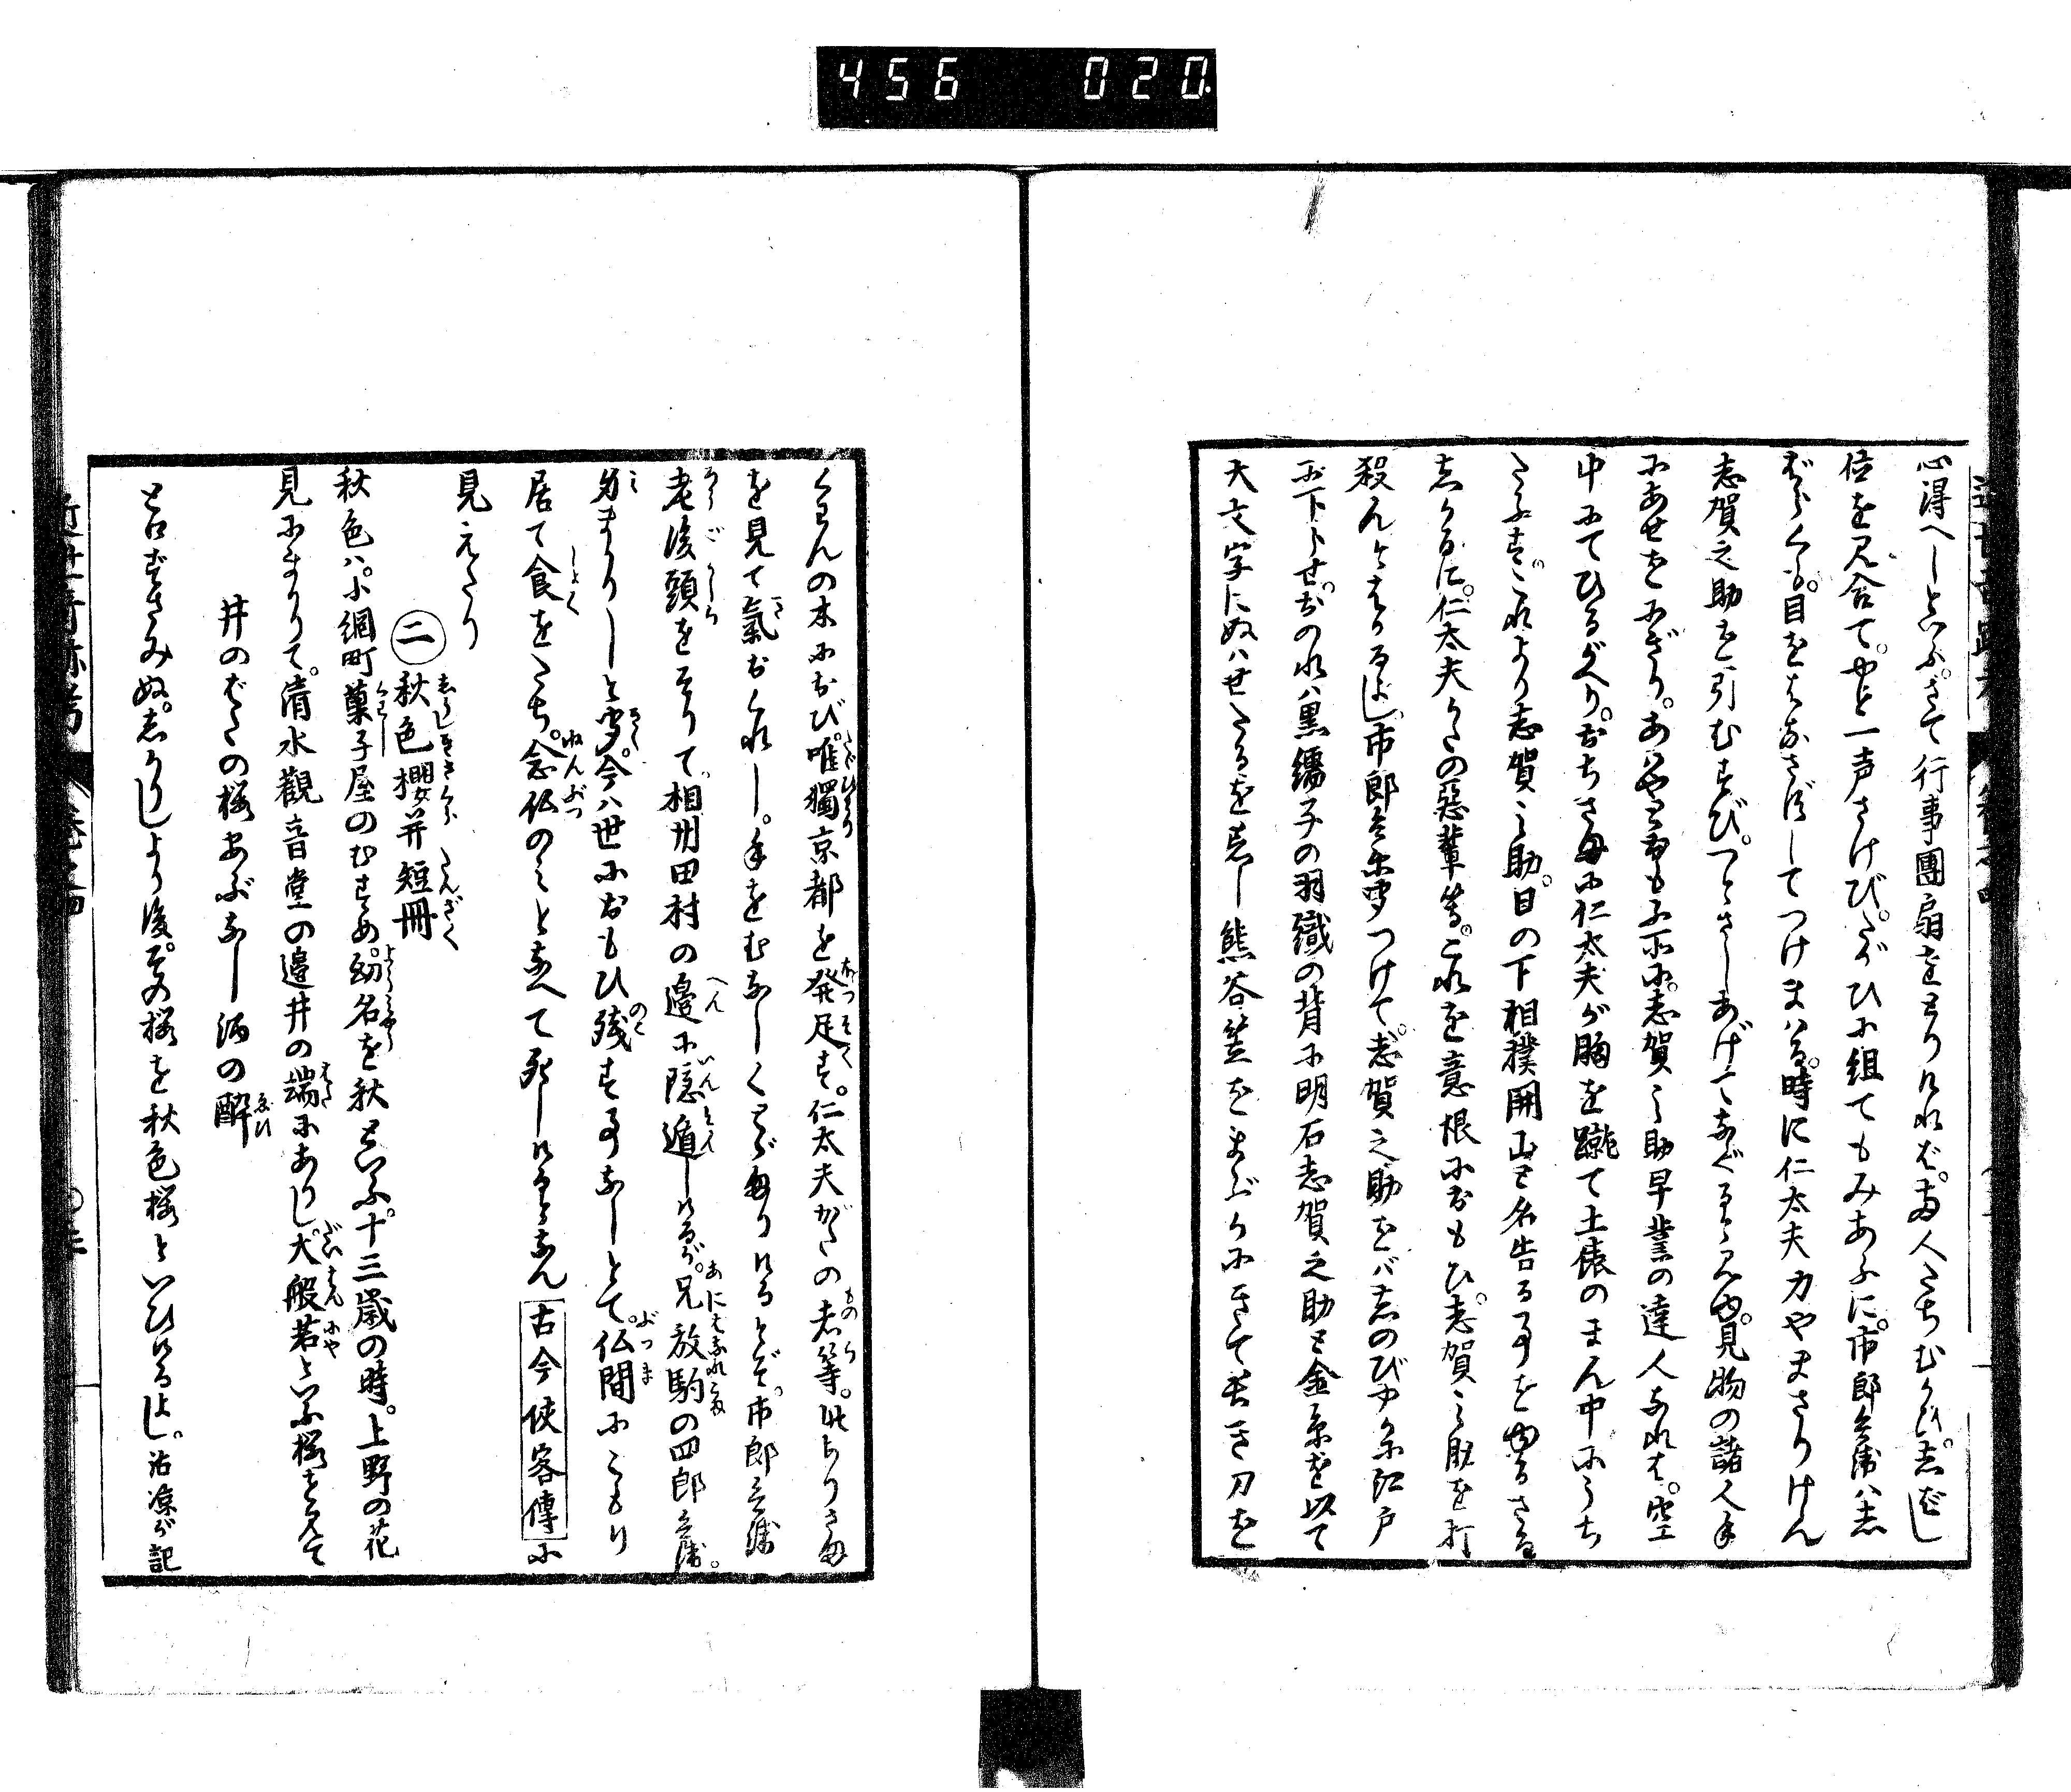 456 020
心得へしといふ。さて行事團扇をとりけれバ。両人たちむかひ。志ばし
位を見合て。やと一声さけび。たがひに組てもみあふに。市郎兵衛ハ志
ばらく。目をはなさずしてつけまハる。時に仁太夫力やまさりけん
志賀之助を引むすび。つとさしあげてなぐると見ゆ。見物の諸人手
にあせをにぎり。あハやと
志賀之助早業の達人なれば。空
中にてひるがへり。おちさまに仁太夫が胸を蹴て土俵のまん中にうち
たふす。これより志賀之助。日の下相撲開山と名告る事をゆるさる
志かるに。仁太夫かたの惡輩等。これを意根におもひ。志賀之助を打
殺んとはかるよし。市郎兵衛聞つけて。志賀之助をバ志のびやかに江戸
に下らせ。おのれハ黒繻子の羽織の背に明石志賀之助と金糸を以て
大文字にぬハせたるを着し熊谷笠をまぶかにきて長き刀を
くわんの木におび。唯獨京都を発足す。仁太夫がたの者等。此ありさま
を見て氣おくれし。手をむなしくとゞまりけるとぞ。市郎兵衛
老後頭をそりて。相州田村の邊に隠遁しけるが。兄放駒の四郎兵衛。
身まかりしと聞。今ハ世におもひ残す事なしとて。仏間にこもり
居て食をたち。念仏のミとなへて死しけるとなん古今侠客傳に
見えたり
㊁秋色櫻并短冊
秋色ハ。小網町菓子屋のむすめ。幼名を秋といふ。十三歳の時。上野の花
見にまかりて。清水觀音堂の邉井の端にありし。大般若といふ桜を見て
井のはたの桜あぶなし酒の酔
と口ずさみぬ。志かりしより後。其桜を秋色桜といひけるよし。沾凉が記